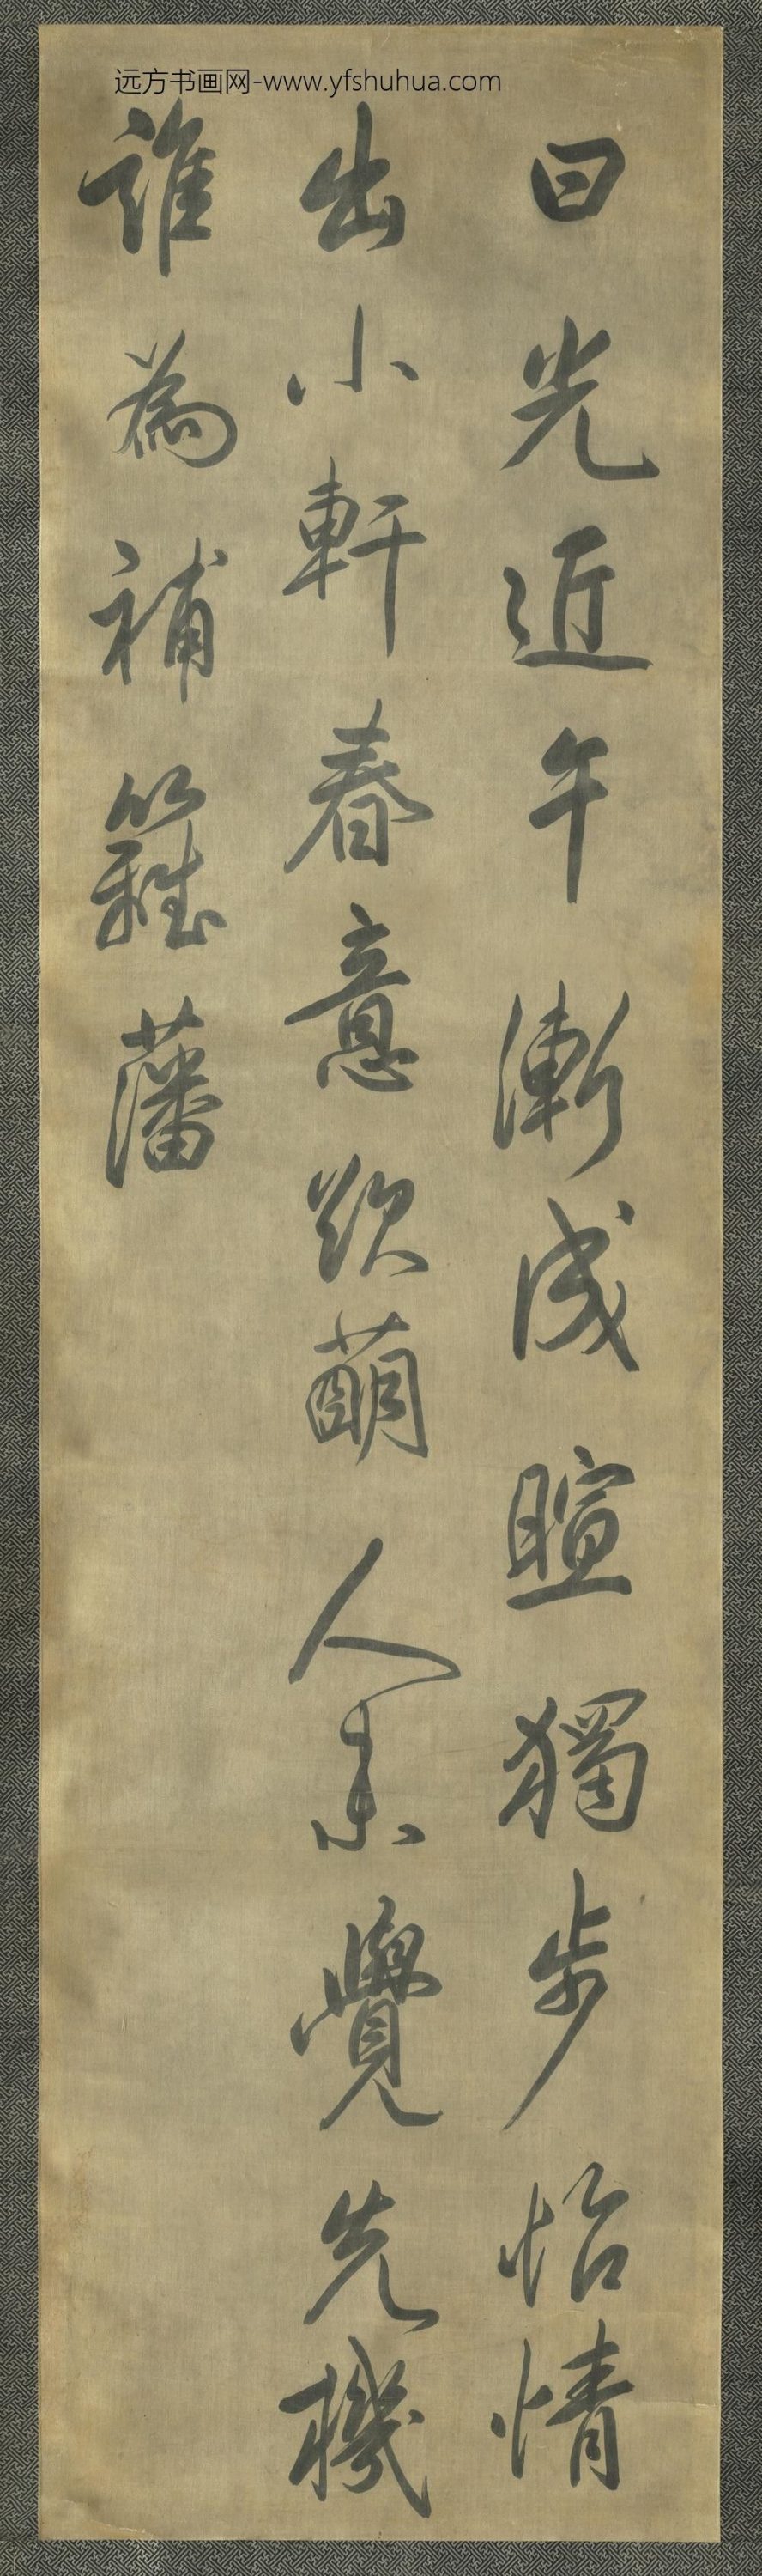 远方书画网-www.yfshuhua.com
日光近午漸成暄獨步怡情
出小軒春意欲萌人未覺先機
誰為補籬藩